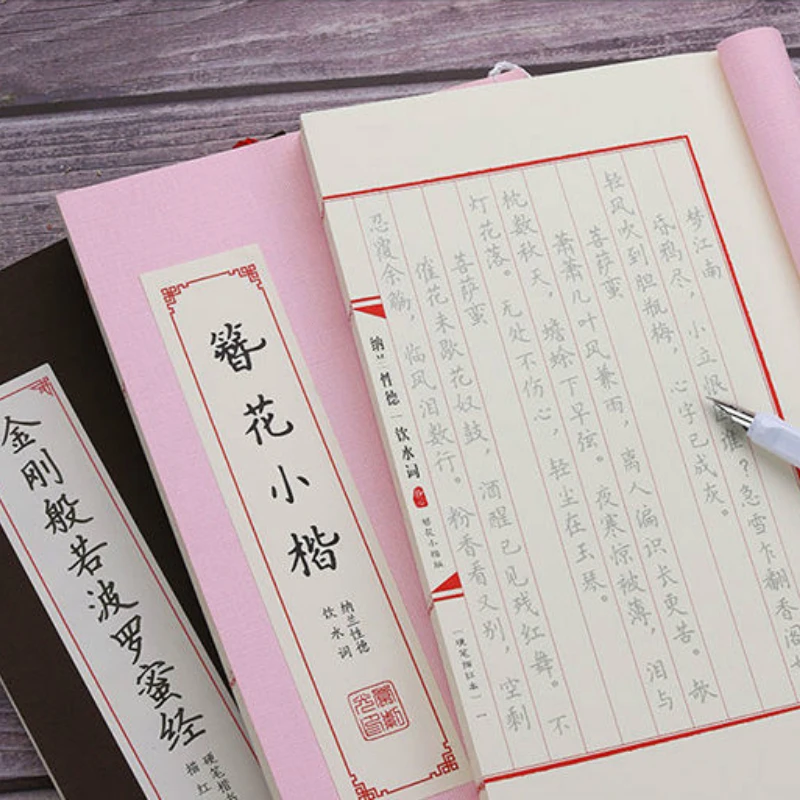 梦江南
昏鸦尽，小立恨谁？急雪乍翻香阁
轻风吹到胆瓶梅，心字已成灰。
菩萨蛮
萧萧几叶风兼雨，离人偏识长更苦。欹
枕数秋天，蟾蜍下早弦。夜寒惊被薄，泪与
灯花落。无处不伤心，轻尘在玉琴。
菩萨蛮
催花未歇花奴鼓，酒醒已见残红舞。不
忍覆余觞，临风泪数行。粉香看又别，空剩
纳兰性德|饮水词
簪花小楷版
【硬笔描红本】
簪花小楷
纳兰性德
饮水词
金刚般若波罗蜜经
硬笔楷书
描红